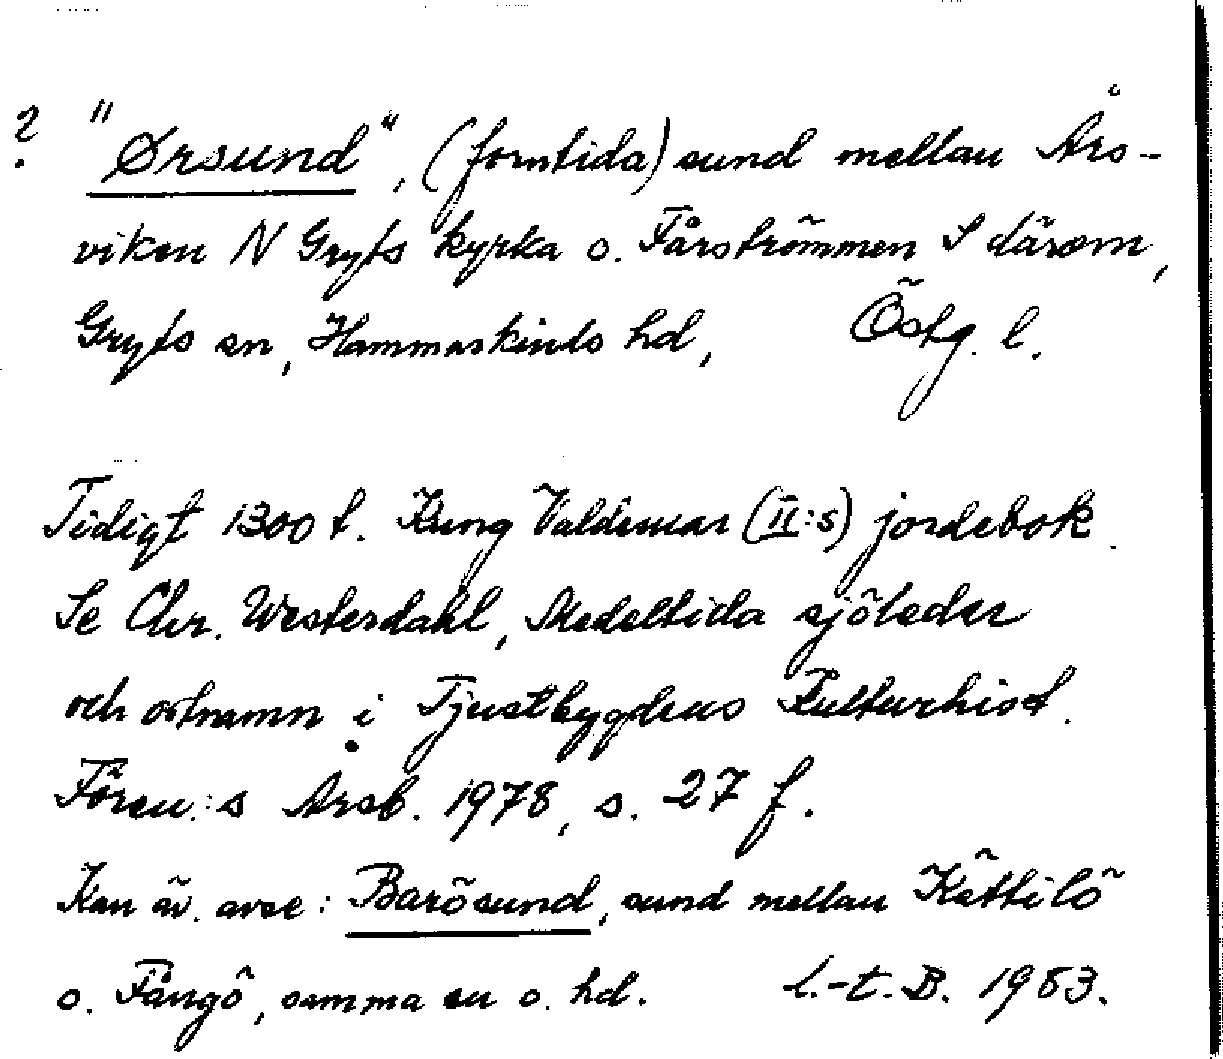 ? "Ørsund", (forntida) sund mellan Års-
viken N Gryts kyrka o. Fårströmmen S därom,
Gryts sn, Hammarkinds hd, Östg. l.
Tidigt 1300 t. Kung Valdemar (II:s) jordebok.
Se Chr. Westerdahl, Medeltida sjöleder
och ortnamn i Tjustbygdens Kulturhist.
Fören:s Årsb. 1978, s. 27 f.
Kan äv. avse: Barösund, sund mellan Kättilö
o. Fångö, samma sn o. hd. l.-t. B. 1983.